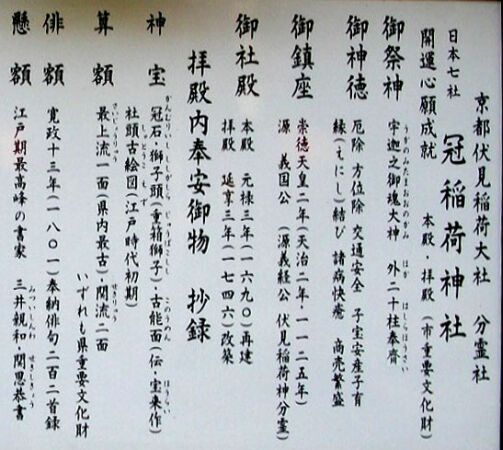 京都伏見稲荷大社 分霊社
日本七社 冠稲荷神社
開運心願成就 本殿・拝殿(市重要文化財)
御祭神 宇迦之御魂大神 外二十柱奉齋
御神徳 厄除 方位除 交通安全 子宝安産子育
縁(えにし)結び 諸病快癒 商売繁盛
御鎮座 崇徳天皇二年(天治二年・一一二五年)
源 義国公 (源義経公 伏見稲荷神分霊)
御社殿 本殿 元禄三年(一六九〇)再建
拝殿 延享三年(一七四六)改築
拝殿内奉安御物 抄録
神宝 冠石・獅子頭(重箱獅子)古能面(伝・宝来作)
社頭古絵図(江戸時代初期)
算額 最上流一面(県内最古)関流二面
いずれも県重要文化財
俳額 寛政十三年(一八〇一)奉納俳句二百二首録
懸額 江戸期最高峰の書家 三井親和・関思恭書